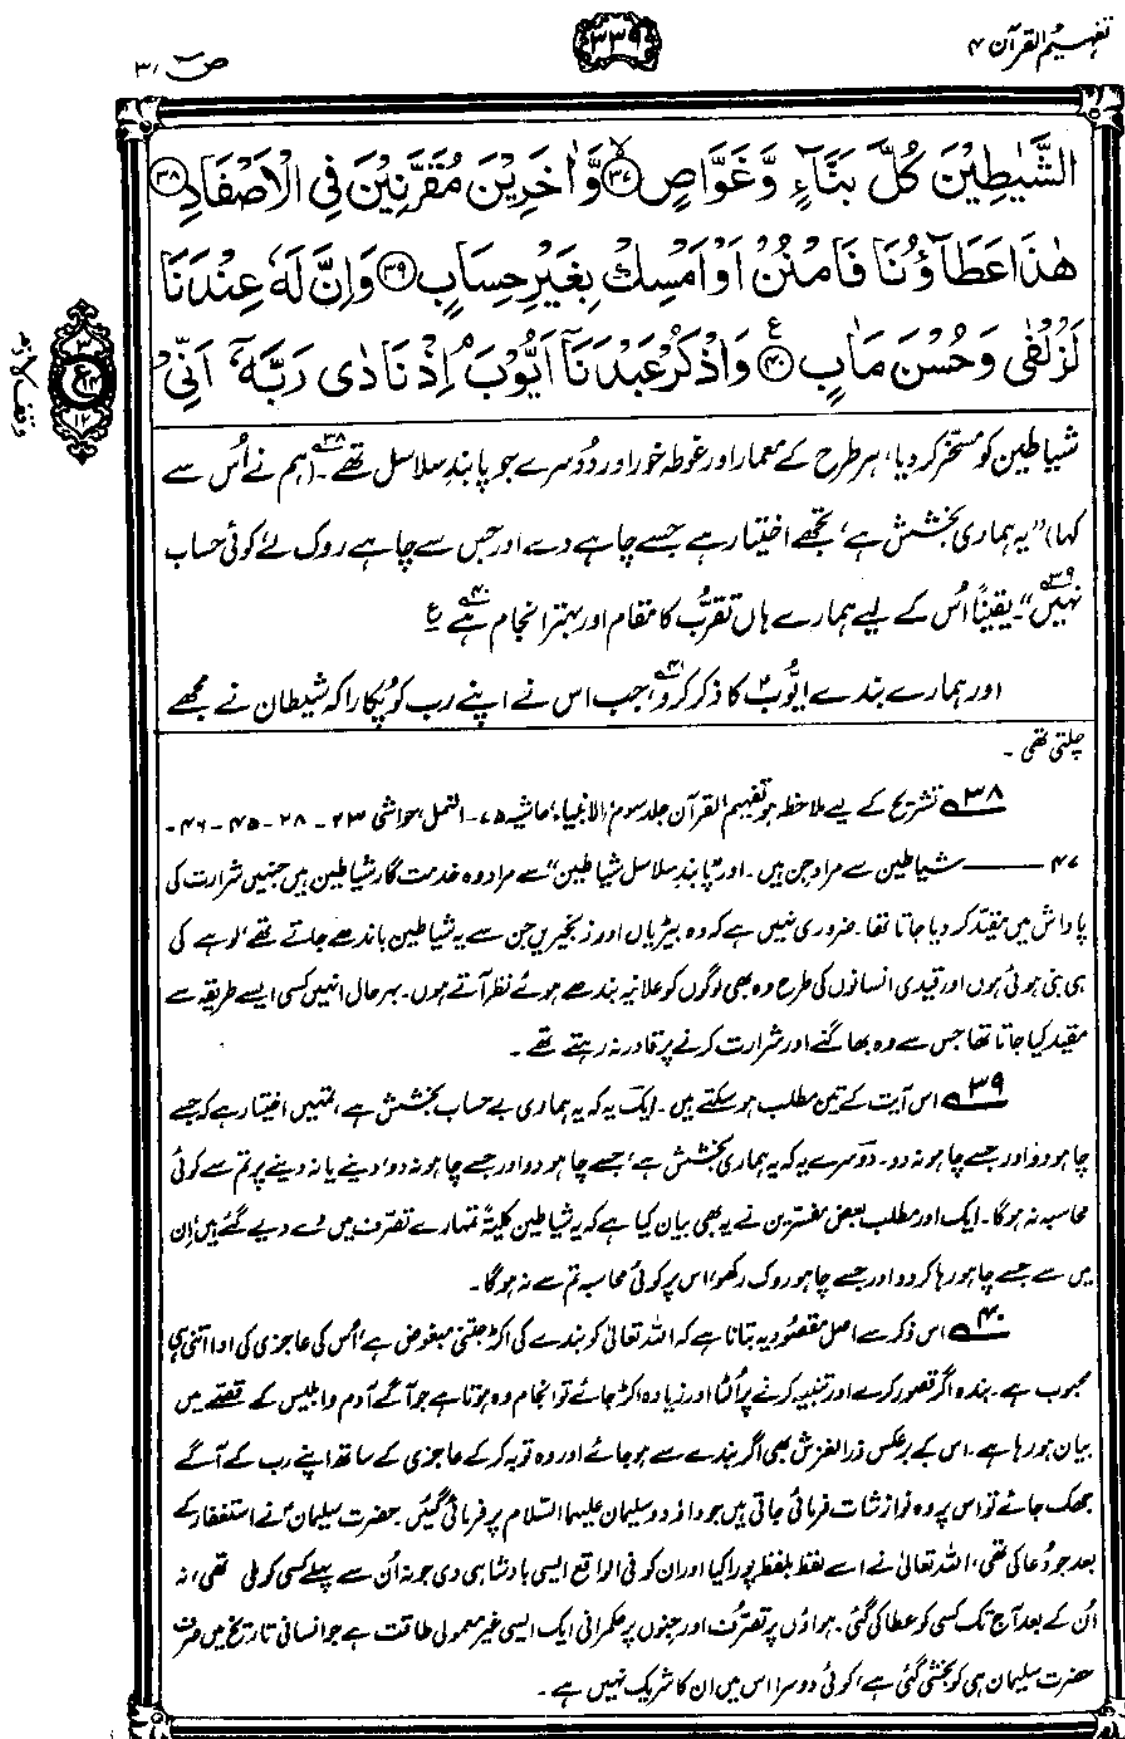 تفہیم القرآن ۴
۳۳۹
ص ۳۸
الشَّيٰطِيْنَ كُلَّ بَنَّآءٍ وَّغَوَّاصٍ ۙ﴿۳۷﴾ وَّاٰخَرِيْنَ مُقَرَّنِيْنَ فِي الْاَصْفَادِ ﴿۳۸﴾
هٰذَا عَطَآؤُنَا فَامْنُنْ اَوْ اَمْسِكْ بِغَيْرِ حِسَابٍ ﴿۳۹﴾ وَاِنَّ لَهٗ عِنْدَنَا
لَزُلْفٰى وَحُسْنَ مَاٰبٍ ﴿۴۰﴾ ع وَاذْكُرْ عَبْدَنَآ اَيُّوْبَ ۘ اِذْ نَادٰى رَبَّهٗٓ اَنِّيْ
۳
ع
۱۲
۱۲
وقف لازم
شیاطین کو مسخّر کر دیا، ہر طرح کے معمار اور غوطہ خور اور دُوسرے جو پابندِ سلاسل تھے۳۸۔ (ہم نے اُس سے
کہا) ”یہ ہماری بخشش ہے، تجھے اختیار ہے جسے چاہے دے اور جس سے چاہے روک لے، کوئی حساب
نہیں“۳۹۔ یقیناً اُس کے لیے ہمارے ہاں تقرُّب کا مقام اور بہتر انجام ہے۴۰ ع
اور ہمارے بندے ایّوبؑ کا ذکر کرو۴۱، جب اس نے اپنے رب کو پُکارا کہ شیطان نے مجھے
چلتی تھی ۔
۳۸ تشریح کے لیے ملاحظہ ہو تفہیم القرآن جلد سوم، الانبیاء، حاشیہ ۷۵۔ النمل، حواشی ۲۳ ۔ ۲۸ ۔ ۴۵ ۔ ۴۶ ۔
۴۷ ——— شیاطین سے مراد جن ہیں۔ اور ”پابندِ سلاسل شیاطین“ سے مراد وہ خدمت گار شیاطین ہیں جنہیں شرارت کی
پاداش میں مقیّد کر دیا جاتا تھا۔ ضروری نہیں ہے کہ وہ بیڑیاں اور زنجیریں جن سے یہ شیاطین باندھے جاتے تھے، لوہے کی
ہی بنی ہوئی ہوں اور قیدی انسانوں کی طرح وہ بھی لوگوں کو علانیہ بندھے ہوئے نظر آتے ہوں۔ بہرحال انہیں کسی ایسے طریقہ سے
مقید کیا جاتا تھا جس سے وہ بھاگنے اور شرارت کرنے پر قادر نہ رہتے تھے ۔
۳۹ اس آیت کے تین مطلب ہو سکتے ہیں۔ ایک یہ کہ یہ ہماری بے حساب بخشش ہے، تمہیں اختیار ہے کہ جسے
چاہو دو اور جسے چاہو نہ دو۔ دوسرے یہ کہ یہ ہماری بخشش ہے، جسے چاہو دو اور جسے چاہو نہ دو، دینے یا نہ دینے پر تم سے کوئی
محاسبہ نہ ہوگا۔ ایک اور مطلب بعض مفسّرین نے یہ بھی بیان کیا ہے کہ یہ شیاطین کلیۃً تمہارے تصرّف میں دے دیے گئے ہیں، اِن
میں سے جسے چاہو رہا کر دو اور جسے چاہو روک رکھو، اس پر کوئی محاسبہ تم سے نہ ہوگا۔
۴۰ اس ذکر سے اصل مقصُود یہ بتانا ہے کہ اللہ تعالیٰ کو بندے کی اکڑ جتنی مبغوض ہے، اُس کی عاجزی کی ادا اتنی ہی
محبوب ہے۔ بندہ اگر قصور کرے اور تنبیہ کرنے پر اُلٹا اور زیادہ اکڑ جائے تو انجام وہ ہوتا ہے جو آگے آدم و ابلیس کے قصّے میں
بیان ہو رہا ہے۔ اس کے برعکس ذرا لغزش بھی اگر بندے سے ہو جائے اور وہ توبہ کر کے عاجزی کے ساتھ اپنے رب کے آگے
جھک جائے تو اس پر وہ نوازشات فرمائی جاتی ہیں جو داؤد و سلیمان علیہما السّلام پر فرمائی گئیں۔ حضرت سلیمانؑ نے استغفار کے
بعد جو دُعا کی تھی، اللہ تعالیٰ نے اسے لفظ بلفظ پورا کیا اور ان کو فی الواقع ایسی بادشاہی دی جو نہ اُن سے پہلے کسی کو ملی تھی، نہ
اُن کے بعد آج تک کسی کو عطا کی گئی۔ ہواؤں پر تصرُّف اور جِنوں پر حکمرانی ایک ایسی غیر معمولی طاقت ہے جو انسانی تاریخ میں صرف
حضرت سلیمان ہی کو بخشی گئی ہے، کوئی دوسرا اس میں ان کا شریک نہیں ہے ۔